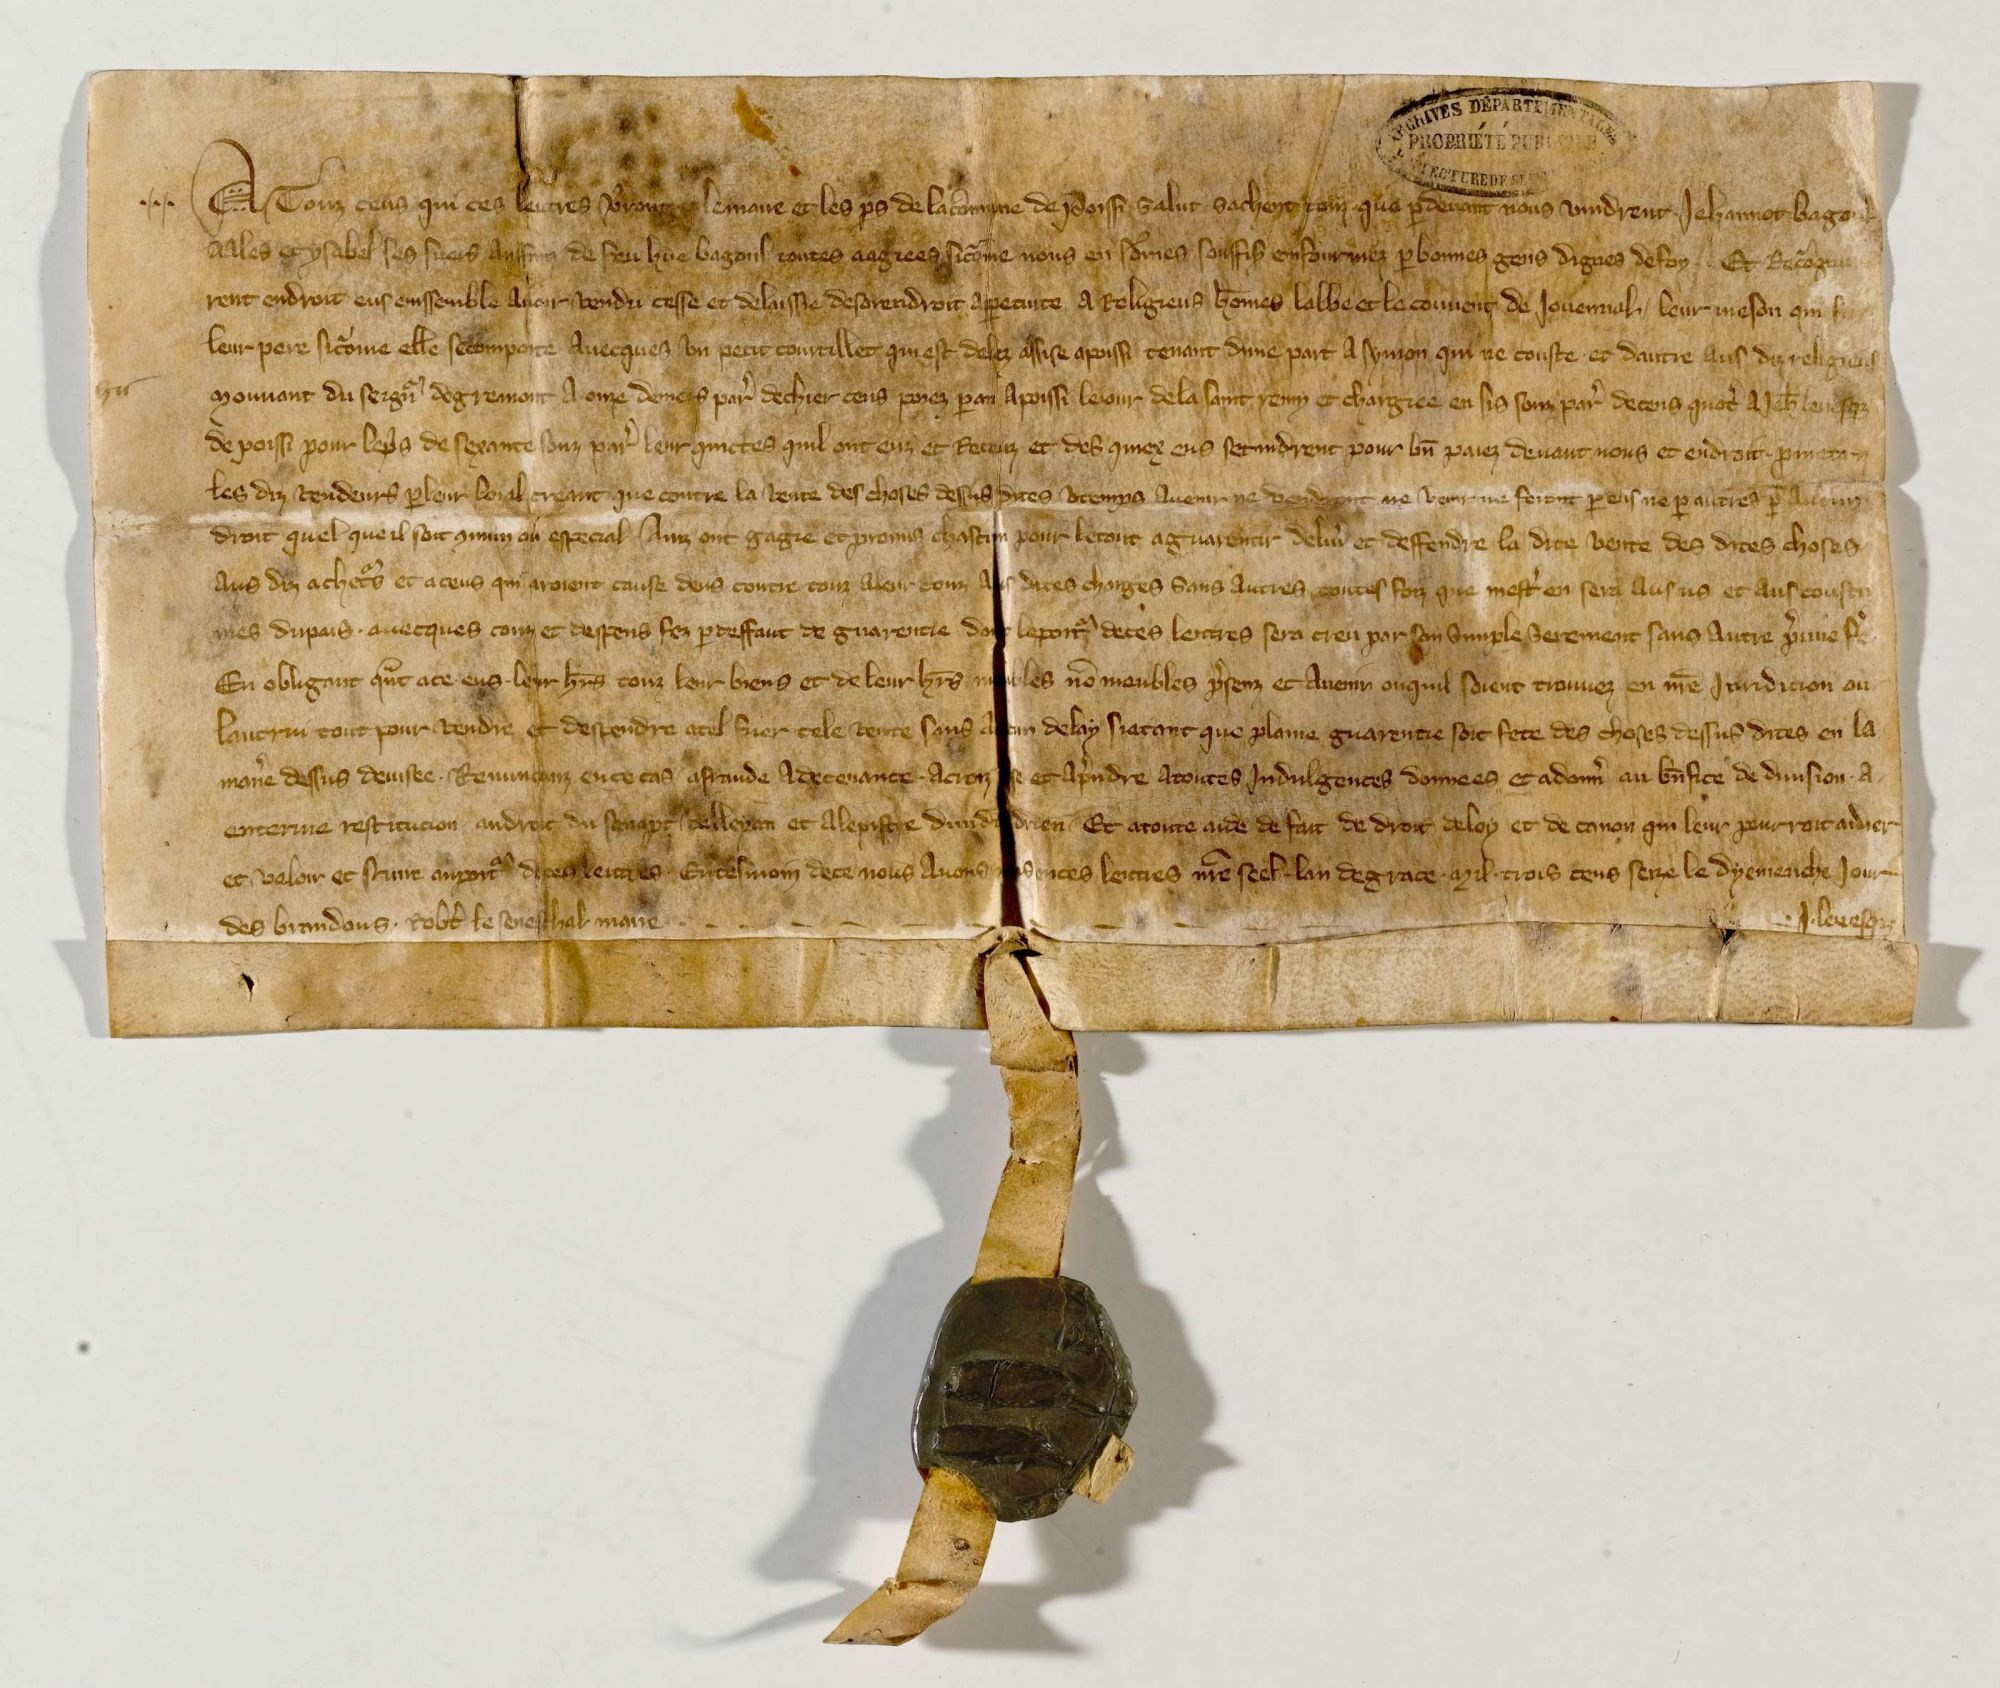 ARCHIVES DÉPARTEMENTALES
PROPRIÉTÉ PUBLIQUE
A Touz ceus qui ces lettres verront le maire et les pers de la commune de Poissi salut sachent touz que p devant nous vindrent Jehannot bagoul
Aales et ysabel ses suers de feu hue bagoul toutes aagees sicōme nous en sōmes souffis enfourmez p bonnes gens dignes de foy Et
rent endroit eus enssemble Avoir vendu cesse et delaissie desorendroit apetuite A Religieus hōmes labbe et le couvent de Jouenval leur meson qui fu
leur pere sicōme elle se comporte Avecques un petit courtillet qui est delez assise apoissi tenant dune part A symon qui ne couste et dautre aus diz religieus
Mouvant du degremont A onze deniers par' de chier cens poiez p an Apoissi le jour de la saint remy et chargiee en sis souz par' de cens A Jeh levesq
de poissi pour le p's de sexante souz par' leur quictes quil ont euz et Receuz et des quiex eus se tindrent pour bn paiez devant nous et endroit prometans
les diz vendeurs p leur loial creant que contre la vente des choses dessus dites utemps Avenir ne vendront ne venir ne feront p eus ne p autres p Aucun
droit quel que il soit ou especial Ainz ont gagie et promis chascun pour le tout aguarentir deliv' et deffendre la dite vente des dites choses
Aus diz achet's et a ceus qui aroient cause deus contre touz aleur couz Aus dites charges sans Autres toutes foiz que mest' en sera Aus us et Aus coustu
mes dupais avecques couz et despens fez p deffaut de guarentie dont le port' de ces lettres sera creu par son simple serement sans Autre
En obligant qnt ace eus leur hrs touz leur biens et de leur hrs meubles nō meubles p'senz et Avenir ou quil soient trouvez en nre Juridicion ou
lautrui tout pour vendre et despendre atel fuer tele vente sans Aucun delay siatant que plaine guarentie soit fete des choses dessus dites en la
man'e dessus devisee Renuncanz en ce cas afraude A decevance et Ap'ndre A toutes Indulgences donnees et adonn' au bnfice de division A
enterine restitucion audroit du et Alepistre Et atoute aide de fait de droit deloy et de canon qui leur pourroit aidier
et valoir et au port' de ces lettres En tesmoin de ce nous Avons mis en ces lettres nre seel lan de grace Mil trois cens seze le dyemenche Jour
des brandons Rob't le seneschal maire
J. levesq